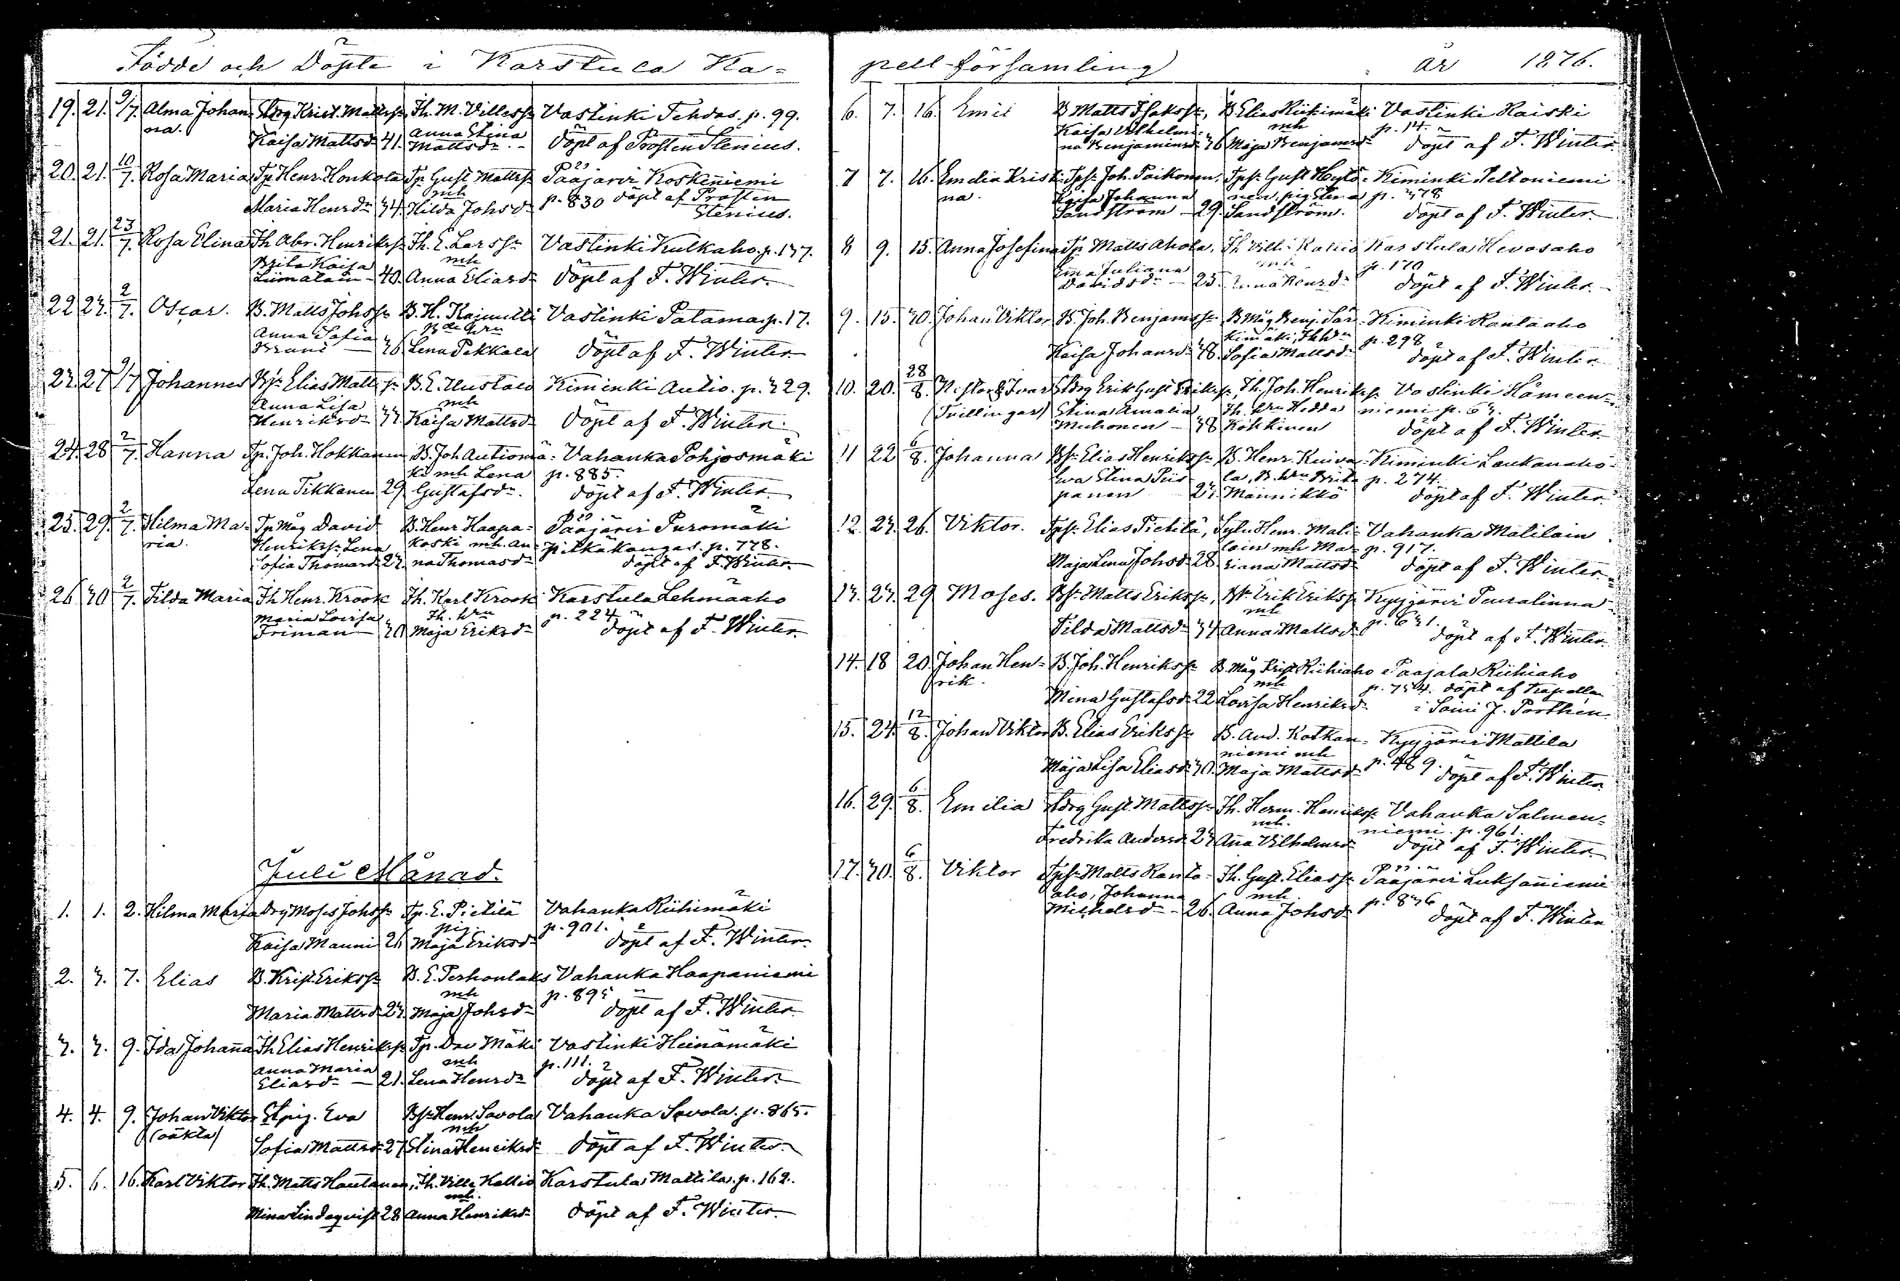 Födde och Döpte i Karstula Ka=
19. 21. 9/7. Alma Johan Kristi. Mattss. Th. M. Villess. Vastinki Tehdas. p. 99.
na. Kaisa Mattsd. 41. Anna Stina Mattsd. döpt af Prosten Stenius.
20. 21. 10/7. Rosa Maria Tp. Henr. Honkola Tp. Gust. Mattss. Pääjärvi Koskenniemi
Maria Henrsd. 34. mh Hilda Johsd. p. 830 döpt af Prosten Stenius.
21. 21. 23/7. Rosa Elina Th. Abr. Henrikss. Th. E. Larss. Vastinki Kulkaho. p. 137.
Brita Kaisa Liimatain 40. mh Anna Eliasd. döpt af F. Winter.
22 23. 2/7. Oscar. B. Matts Johss. B. H. Vastinki Patama p. 17.
Anna Sofia 36. Lena Pekkala döpt af F. Winter
23. 27 9/7 Johannes Bs. Elias Mattss. B. E. Kiminki Autio. p. 329.
Anna Lisa Henriksd. 33. mh Kaisa Mattsd. döpt af F. Winter.
24. 28 2/7. Hanna Tp. Joh. Hokkanen B. Joh. Autiomä= Vahanka Pohjosmäki
Lena Tikkanen 29. ki mh Lena Gustafsd. p. 885. döpt af F. Winter
25. 29. 2/7. Hilma Ma= Tp. Måg David B. Henr. Haapa= Pääjärvi Puromäki
ria. Henrikss. Lena koski mh An= pitkäkangas. p. 778.
Sofia Thomasd. 23. na Thomasd. döpt af F. Winter
26 30 2/7. Tilda Maria Th. Henr. Krook Th. Karl Krook Karstula Lehmäaho
Maria Lovisa Friman 30 Th. hru Maja Eriksd. p. 224. döpt af F. Winter
Juli Månad.
1. 1. 2. Hilma Maria Drg. Moses Johss. Tp. E. Pietilä Vahanka Riihimäki
Kaisa Manni 26 pig. Maja Eriksd. p. 901. döpt af F. Winter.
2. 3. 7. Elias B. Krist. Erikss. B. E. Perhonlaks Vahanka Haapaniemi
Maria Mattsd. 23. mh Maja Johsd. p. 895 döpt af F. Winter
3. 3. 9. Ida Johanna Th. Elias Henrikss. Tp. Dav. Mäki Vastinki Heinämäki
Anna Maria Eliasd. 21. mh Lena Henrsd. p. 111. döpt af F. Winter
4. 4. 9. Johan Viktor Pig. Eva Bs. Henr. Savola Vahanka Savola. p. 865.
(oäkta) Sofia Mattsd. 27 mh Stina Henriksd. döpt af F. Winter.
5. 6. 16. Karl Viktor Th. Matts Hautanen, Th. Ville Kallio Karstula Mattila. p. 162.
Mina Lindeqvist 28 mh. Anna Henriksd. döpt af F. Winter.
pell-församling år 1876.
6. 7. 16. Emil B. Matts Isakss., B. Elias Riihimäki Vastinki Raiski
Kaisa Vilhelmi= na Benjaminsd. 36 mh Maja Benjamsd. p. 14. döpt af F. Winter
7 7. 16. Emelia Kristi Tps. Joh. Paikonen, Tps. Gust. Hyytö= Kiminki Peltoniemi
na. Kaisa Johanna Sandström 29. nen, pig. Stina Sandström. p. 378 döpt af F. Winter.
8 9. 15. Anna Josefina Tp. Matts Ahola, Th. Vilh. Kallio Karstula Hevosaho
Ema Juliana Davidsd. 25. mh Henrsd. p. 170 döpt af F. Winter.
9. 15. 30. Johan Viktor B. Joh. Benjamss. B. Måg Benj. Sär= Kiminki Rantaaho
Kaisa Johansd. 38. kimäki, Sofia Mattsd. p. 298 döpt af F. Winter
10. 20. 28/8. & Ivar Drg. Erik Gust. Erikss., Th. Joh. Henrikss. Vastinki Hämeen=
(Tvillingar) Stina Amalia Muhonen 38 Th. hru Hedda Kokkinen niemi p. 63. döpt af F. Winter
11 22 6/8. Johanna Bs. Elias Henrikss. B. Henr. Kiminki Laukanaho
Eva Stina Piis= panen 23. la, B. hru Brita Männikkö p. 274. döpt af F. Winter.
12. 23. 26. Viktor. Tps. Elias Pietilä, Sytn. Henr. Mati= Vahanka Matilain
Maja Lena Johsd. 28. lain mh Ma= riana Mattsd. p. 917. döpt af F. Winter.
13. 23. 29 Moses. Bs. Matts Erikss., Bs. Erik Erikss. Kyyjärvi Peuralinna
Tilda Mattsd. 34 mh Anna Mattsd. p. 631. döpt af F. Winter.
14. 18 20. Johan Hen= B. Joh. Henrikss. B. Måg Krist. Riihiaho Paajala Riihiaho
rik. Mina Gustafsd. 22 mh Lovisa Henriksd. p. 754. döpt af Kapellan i Saini J. Porthén.
15. 24. 12/8. Johan Viktor B. Elias Erikss. B. And. Kotkan= Kyyjärvi Mattila
Maja Lisa Eliasd. 30. niemi mh Maja Mattsd. p. 489. döpt af F. Winter.
16. 29. 6/8. Emilia Gust. Mattss. Th. Herm. Henrikss. Vahanka Salmen=
Fredrika Andersd. 23 mh. Anna Vilhelmsd. niemi. p. 961. döpt af F. Winter
17. 30. 6/8. Viktor Tps. Matts Ranta= Th. Gust. Eliass. Pääjärvi Luksanniemi
aho, Johanna Michelsd. 26. mh. Anna Johsd. p. 836 döpt af F. Winter